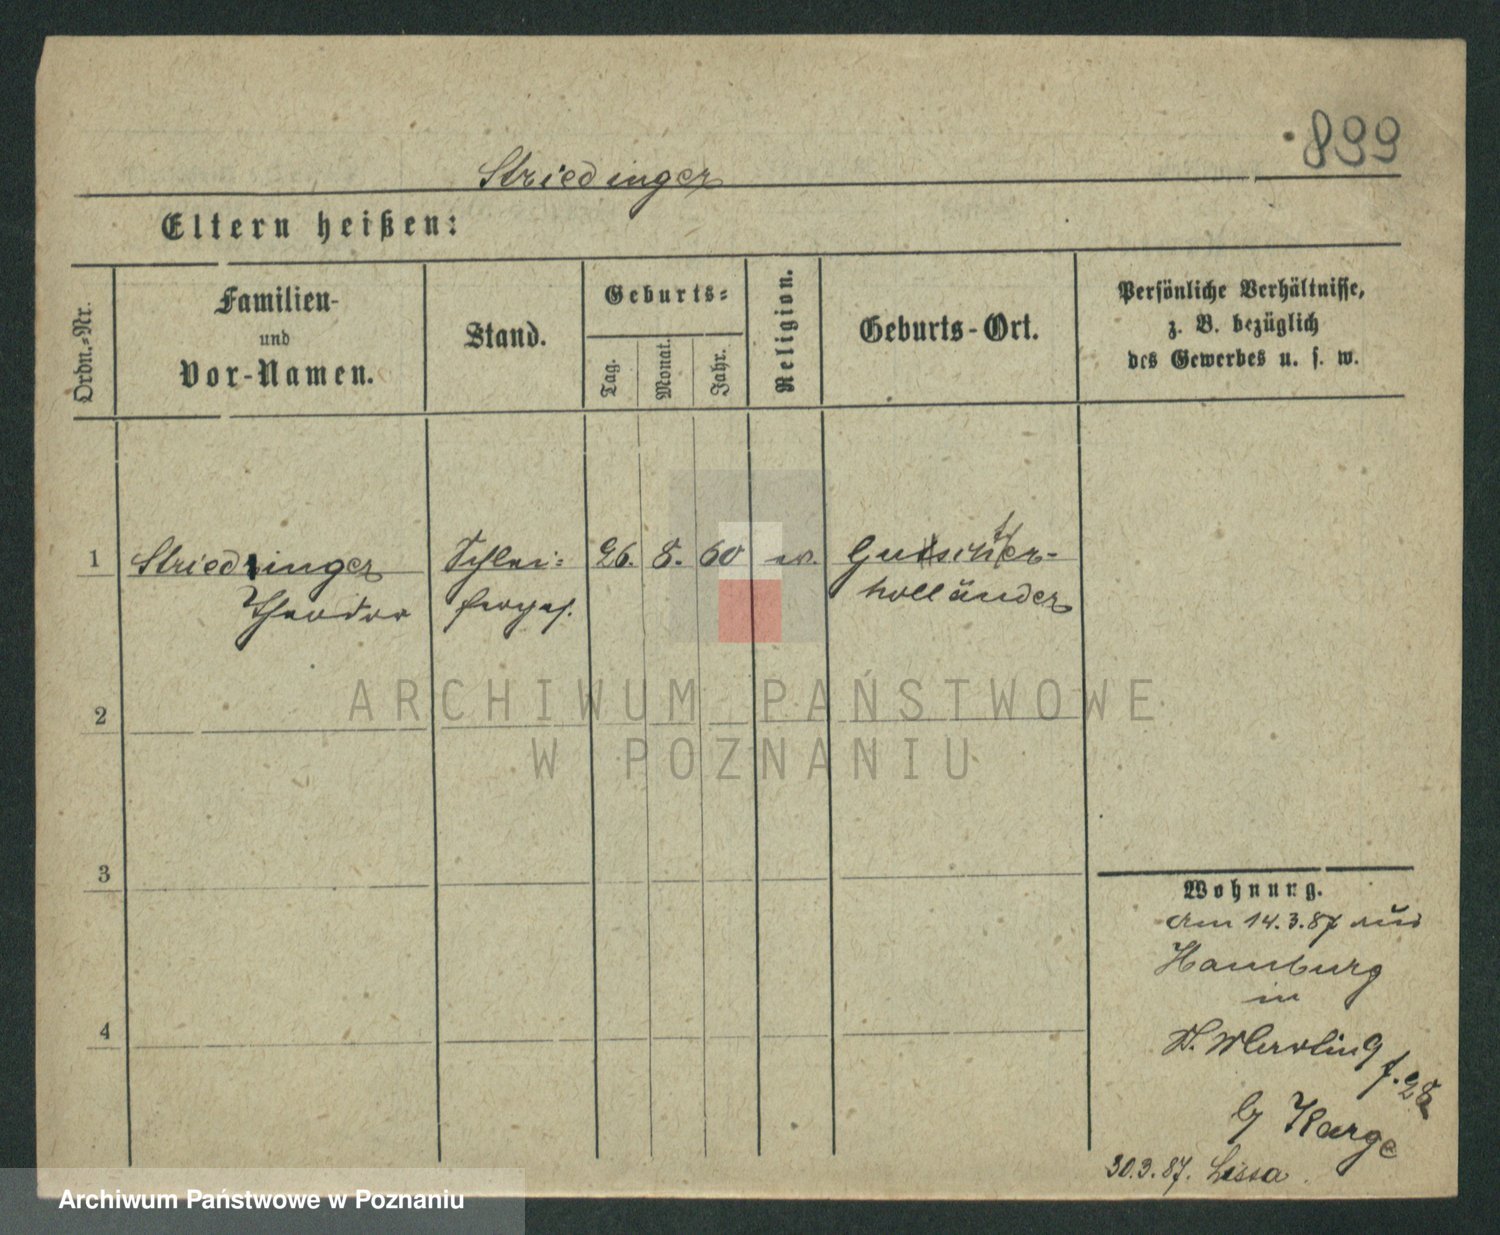 899
Striedinger
Eltern heißen:
Ordn.-Nr.
Familien-
und
Vor-Namen.
Stand.
Geburts-
Tag.
Monat.
Jahr.
Religion.
Geburts-Ort.
Persönliche Verhältnisse,
z. B. bezüglich
des Gewerbes u. s. w.
1 Striedinger Schlei- 26. 8. 60
Theodor
holländer
2
ARCHIWUM PAŃSTWOWE
W POZNANIU
3
4
Wohnung.
Am 14.3.87 aus
Hamburg
in
St. Martin
b/ Karge
30.3.87. Lissa.
Archiwum Państwowe w Poznaniu